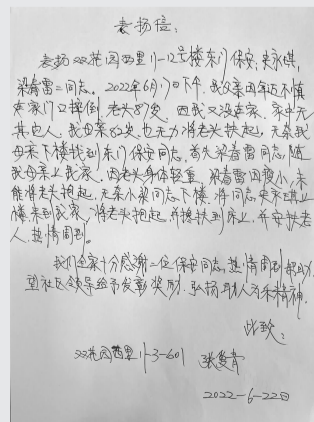 表扬信：
表扬双花园西里11-12号楼东门保安：史永祺，
梁春雷二同志。2022年6月17日下午，我父亲因年迈不慎
在家门口摔倒，老头87岁，因我又没在家，家中无
其他人，我母亲82岁，也无力将老头扶起，无奈我
母亲下楼找到东门保安同志，首先梁春雷同志，随
我母亲上我家，因老头身体较重，梁春雷因瘦小，未
能将老头抱起，无奈小梁同志下楼，将同志史永祺上
楼来到我家，将老头抱起，并搀扶到床上，并安扶老
人，热情周到。
我们全家十分感谢二位保安同志，热情周到帮助，
望社区领导给予发彰奖励，弘扬助人为乐精神。
此致：
双花园西里11-3-601 张
2022-6-22日